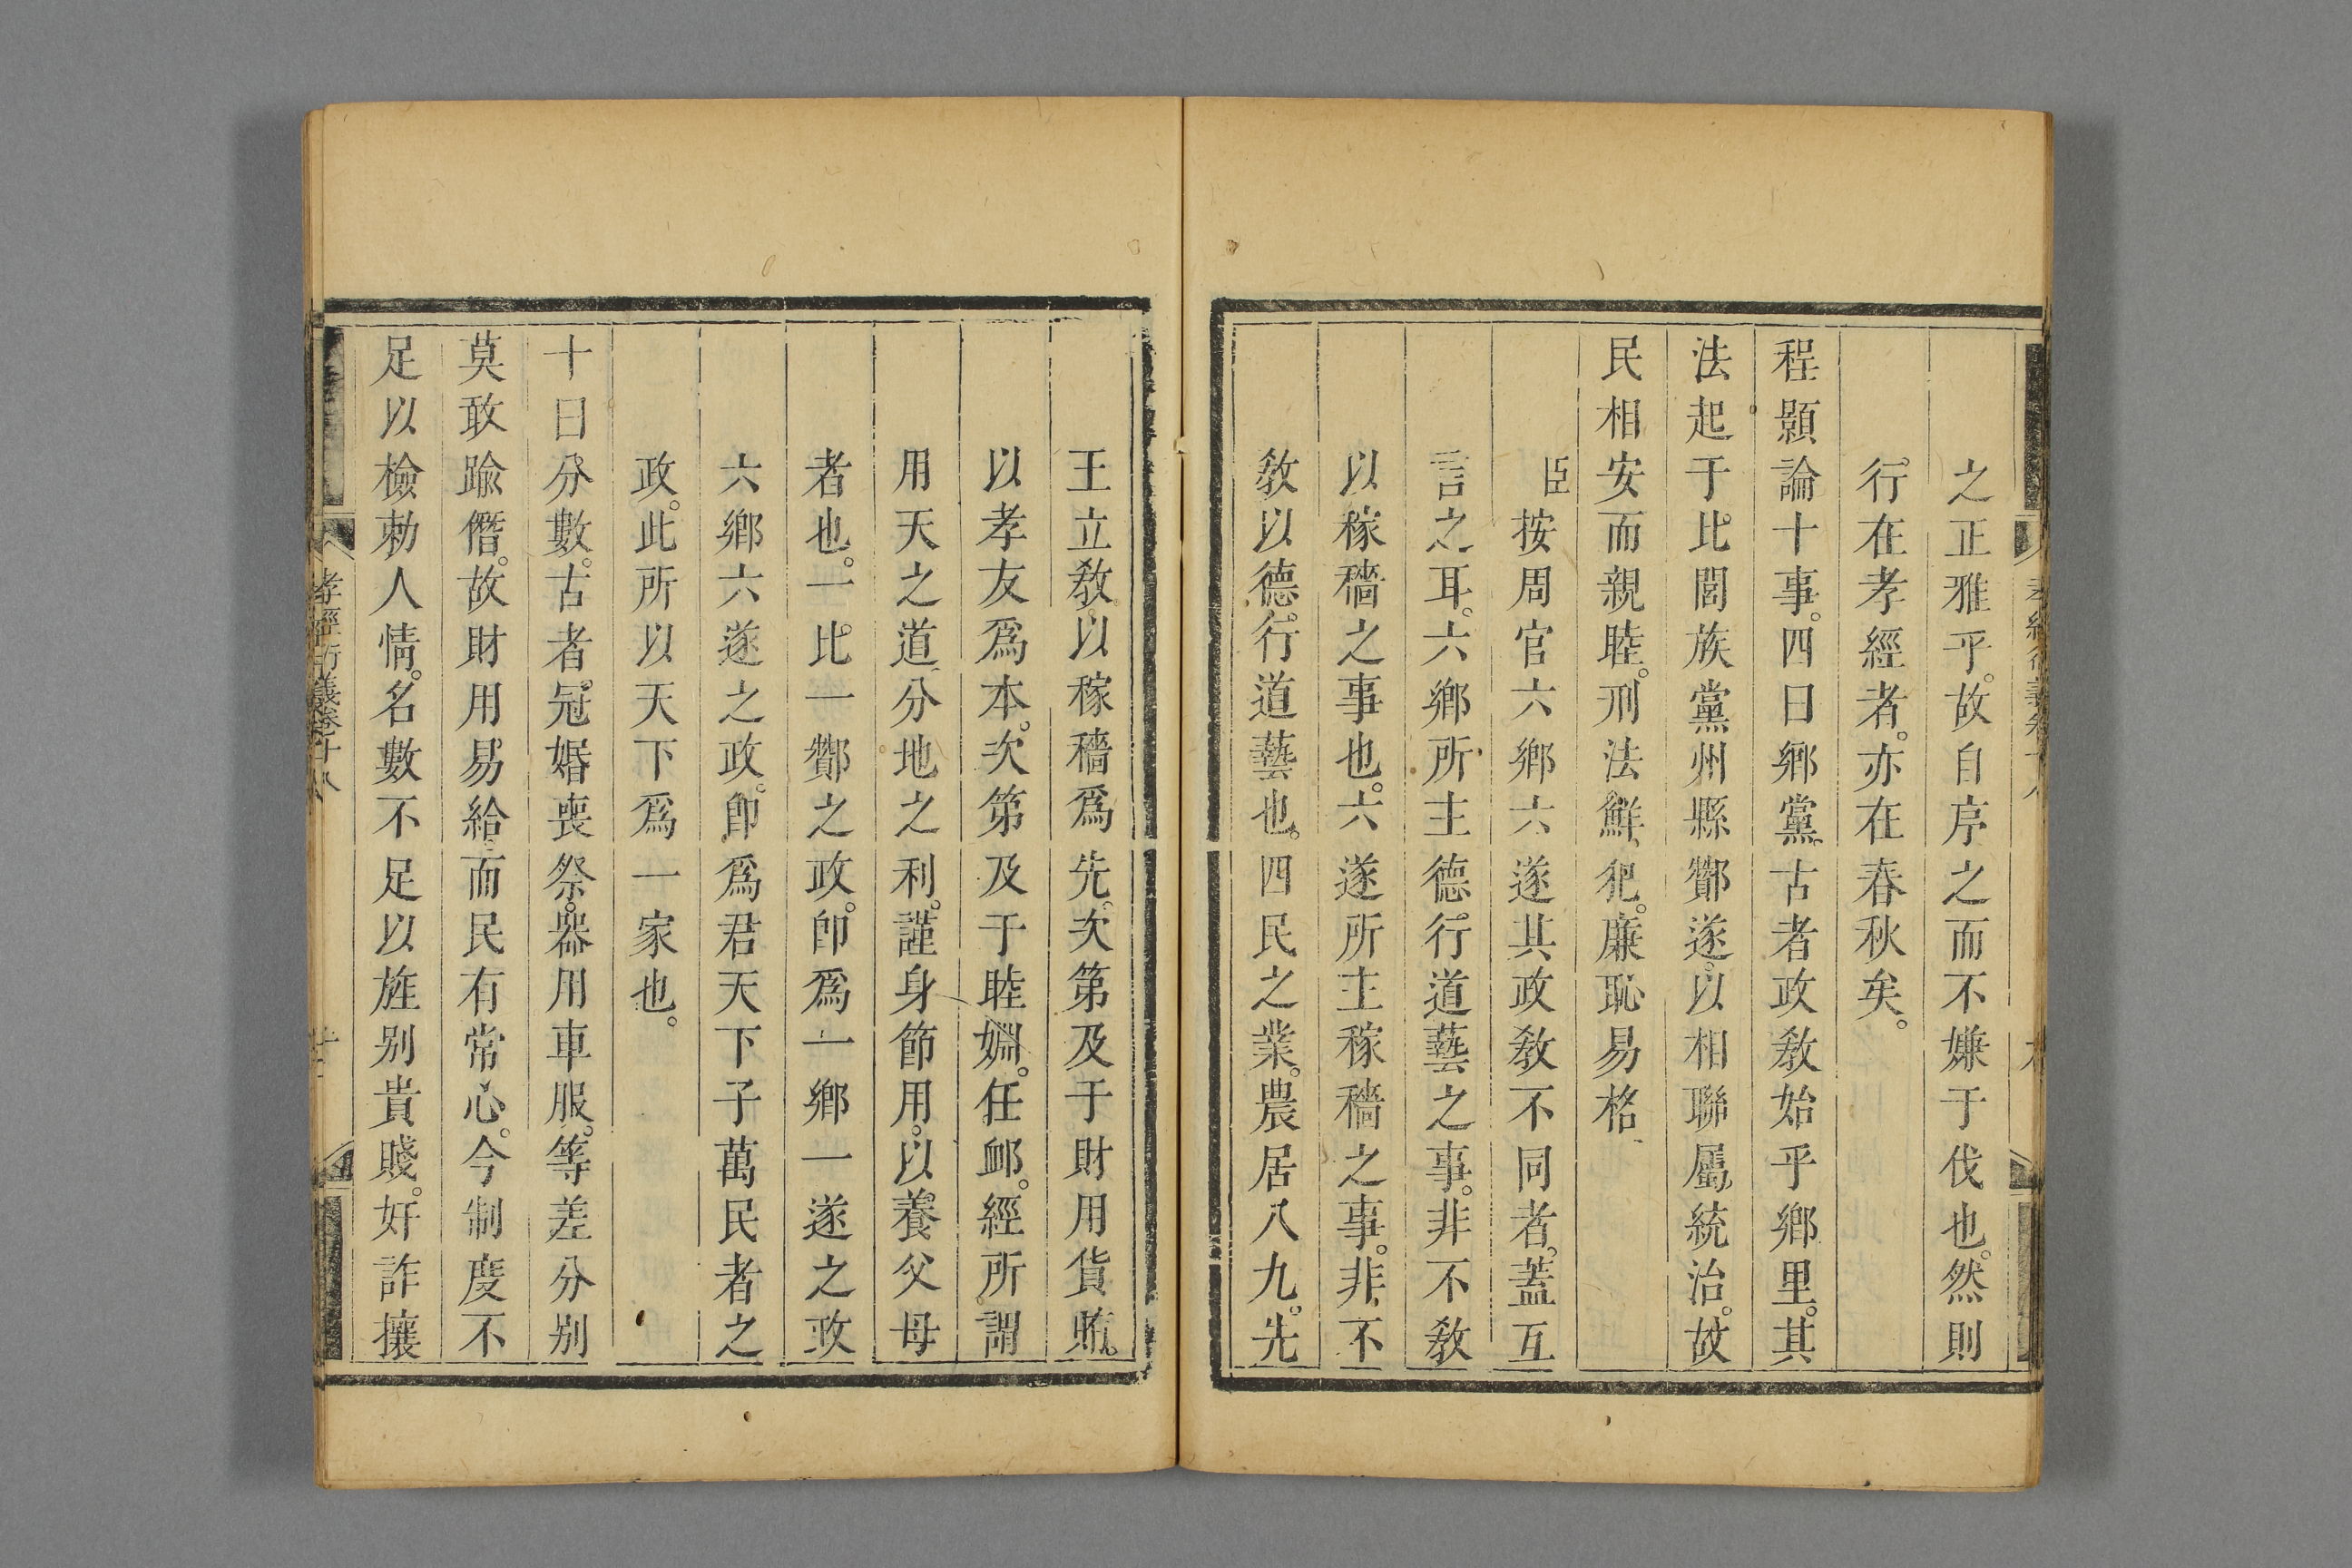 之正雅乎。故自序之而不嫌于伐也。然則
行在孝經者。亦在春秋矣。
程顥論十事。四曰鄉黨。古者政敎始乎鄉里。其
法起于比閭族黨州縣酇遂。以相聯屬統治。故
民相安而親睦。刑法鮮犯。廉恥易格
臣按周官六鄉六遂其政敎不同者。蓋互
言之耳。六鄉所主德行道藝之事。非不敎
以稼穡之事也。六遂所主稼穡之事。非不
敎以德行道藝也。四民之業。農居八九。先
王立敎。以稼穡爲先。次第及于財用貨賄。
以孝友爲本。次第及于睦婣。任卹。經所謂
用天之道分地之利。謹身節用。以養父母
者也。一比一酇之政。卽爲一鄉一遂之政
六鄉六遂之政。卽爲君天下子萬民者之
政。此所以天下爲一家也。
十曰分數。古者。冠婚喪祭。器用車服。等差分別
莫敢踰僭。故財用易給。而民有常心。今制度不
足以檢勅人情。名數不足以旌别貴賤。奸詐攘
孝經衍義卷十八